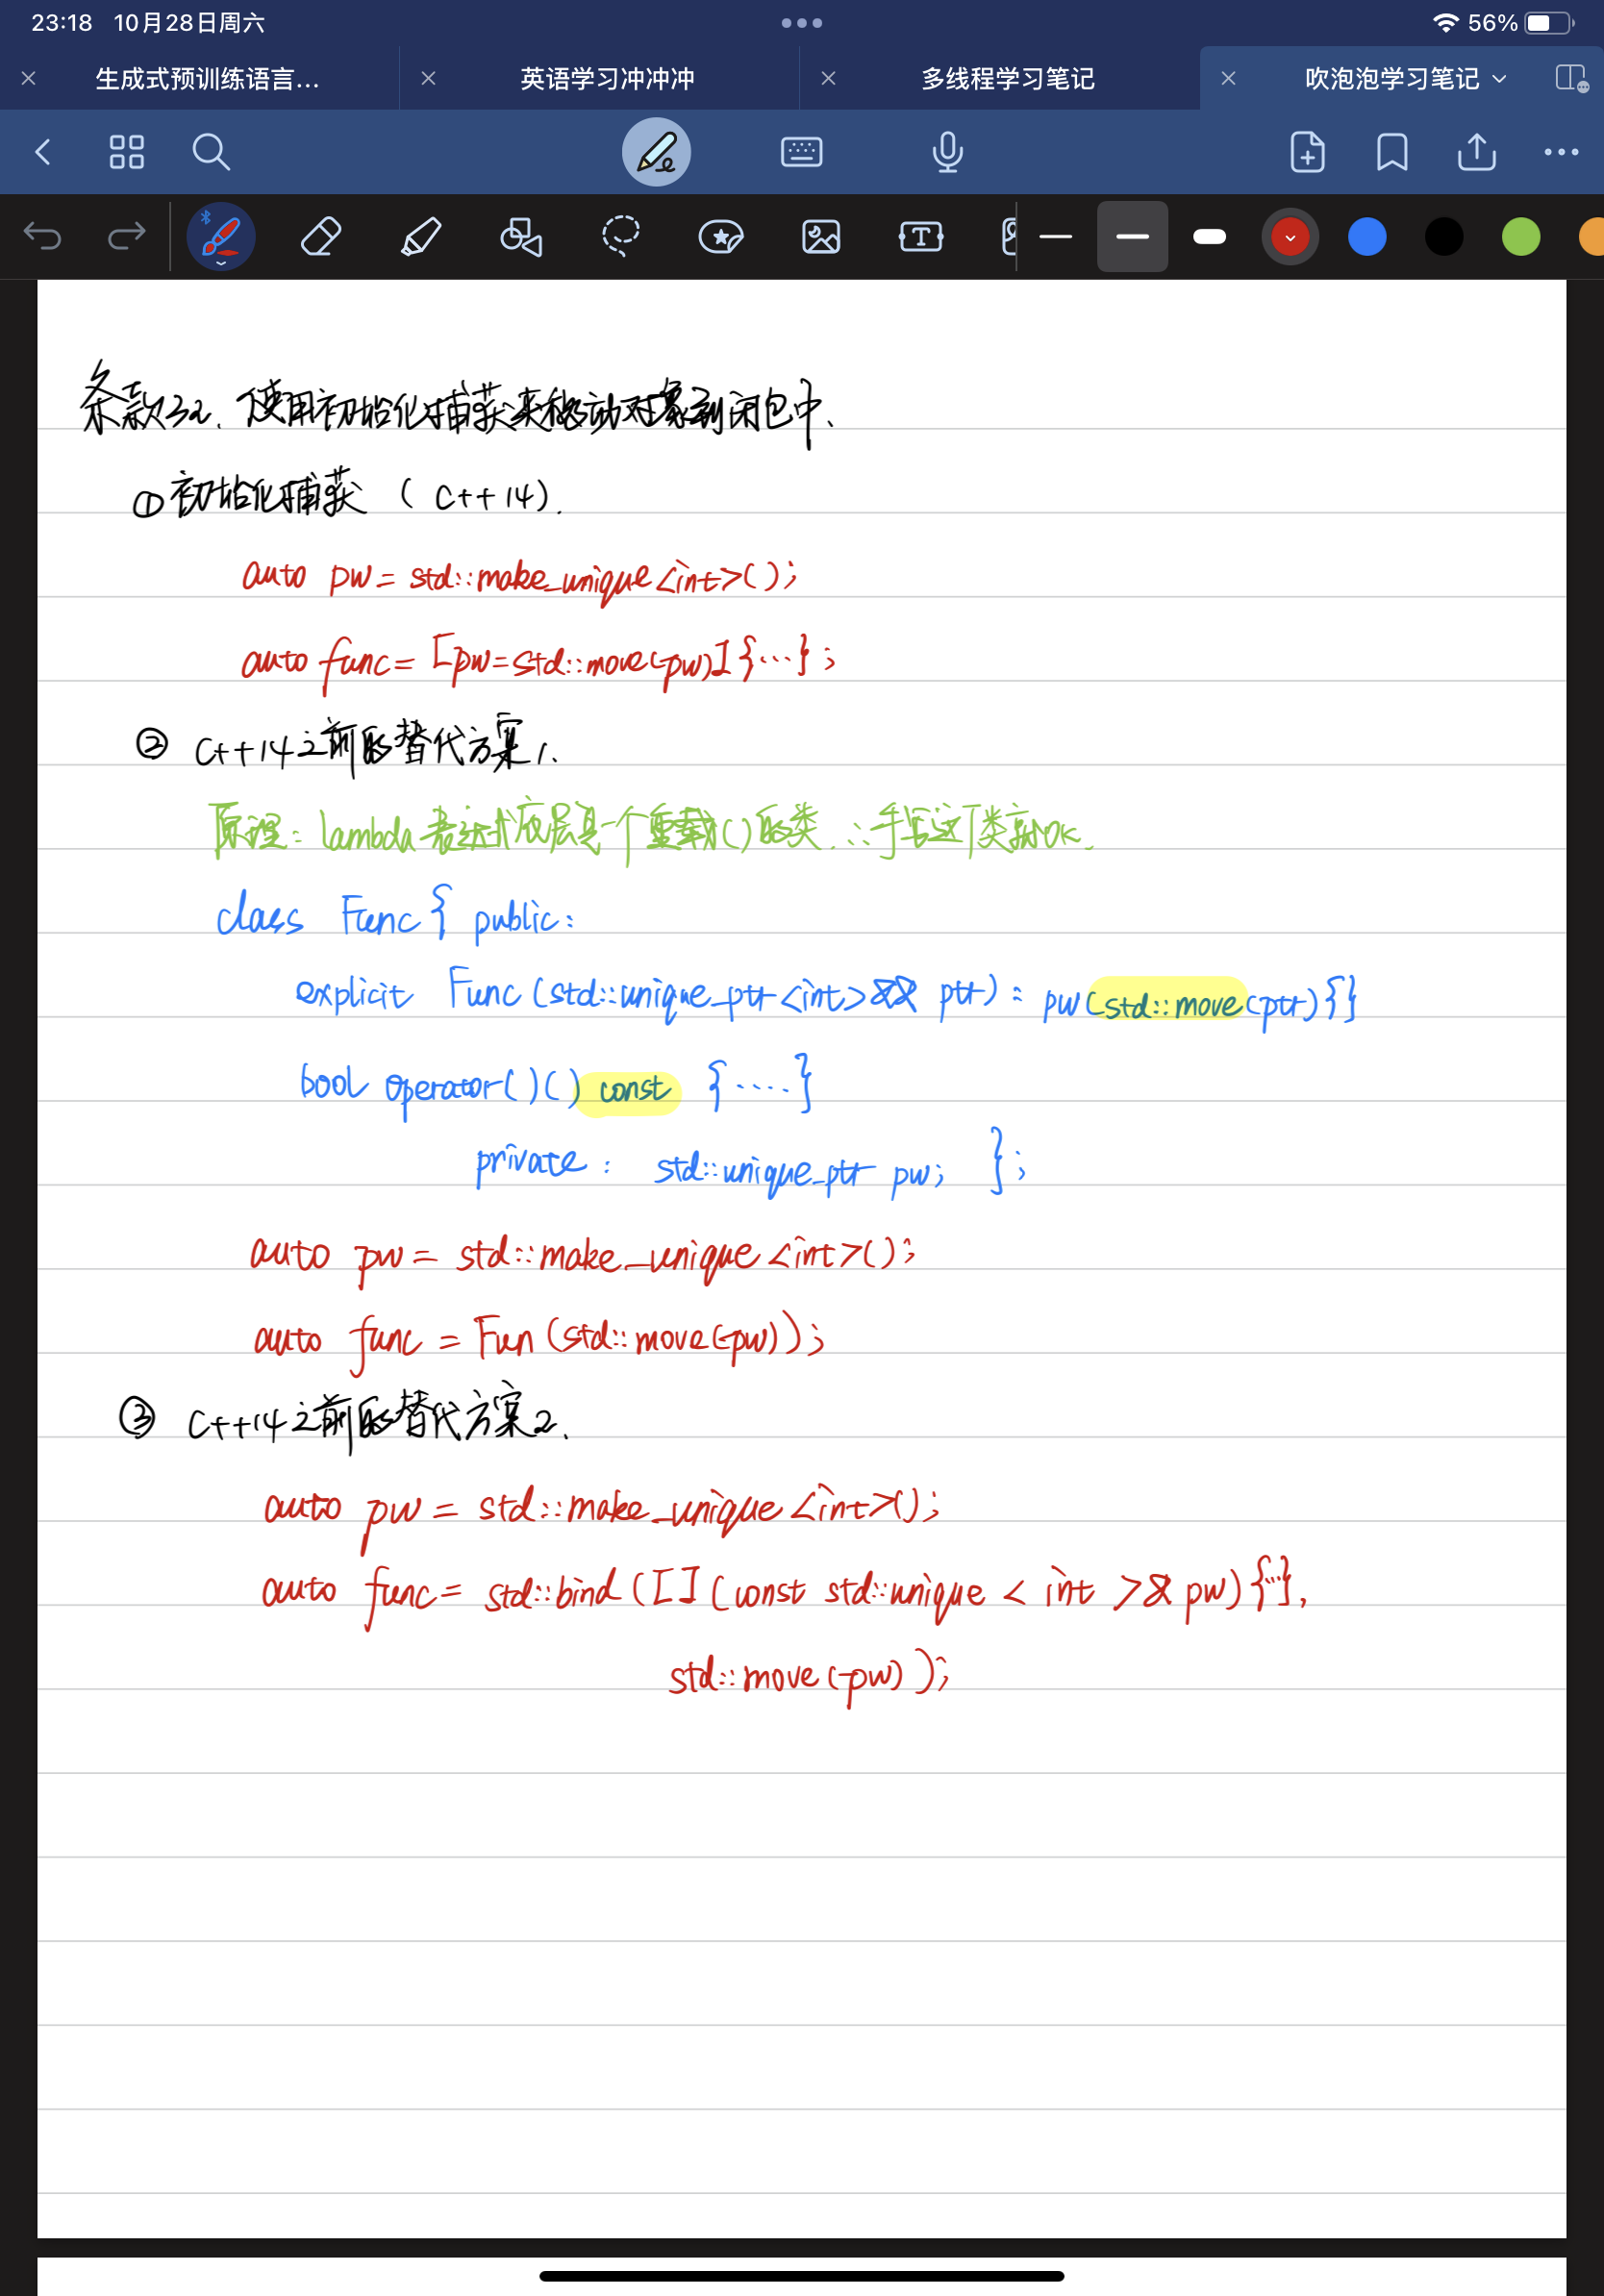 23:18 10月28日周六 56%
生成式预训练语言... 英语学习冲冲冲 多线程学习笔记 吹泡泡学习笔记
条款32. 使用初始化捕获来移动对象到闭包中.
① 初始化捕获 ( C++14).
auto pw = std::make_unique<int>();
auto func = [pw=std::move(pw)]{...};
② C++14之前的替代方案1.
原理: lambda表达式底层是一个重载()的类. ∴手写这个类就ok.
class Func { public:
explicit Func(std::unique_ptr<int>&& ptr): pw(std::move(ptr){}
bool operator()() const {....}
private: std::unique_ptr pw; };
auto pw = std::make_unique<int>();
auto func = Fun(std::move(pw));
③ C++14之前的替代方案2.
auto pw = std::make_unique<int>();
auto func = std::bind([](const std::unique<int>& pw){...},
std::move(pw));